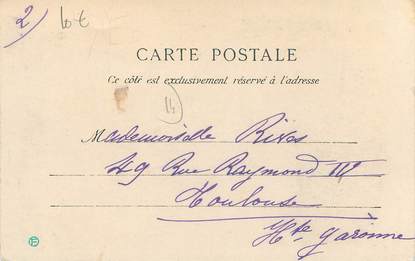 2)
10 €
CARTE POSTALE
Ce côté est exclusivement réservé à l'adresse
14
Mademoiselle Rives
49 Rue Raymond IV
Toulouse
Hte Garonne